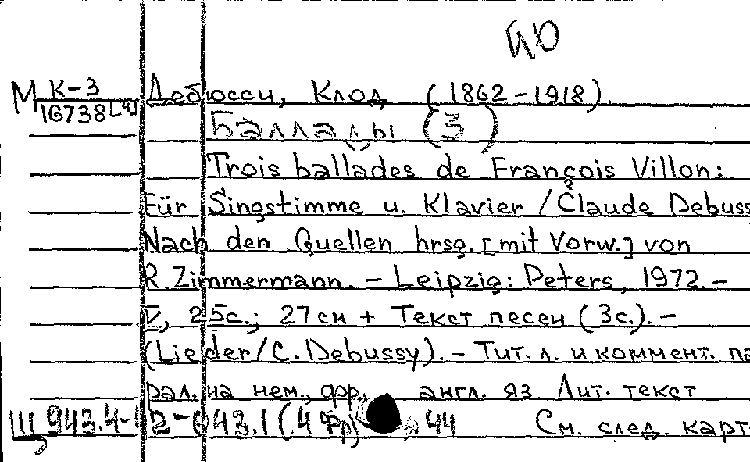 М К-3
16738
Дебюсси, Клод (1862-1918).
Баллады (3)
Trois ballades de François Villon:
Für Singstimme u. Klavier / Claude Debuss
Nach den Quellen hrsg. [mit Vorw.] von
R. Zimmermann. - Leipzig: Peters, 1972. -
V, 25 с.; 27 см + Текст песен (3с.). -
(Lieder / C. Debussy). - Тит. л. и коммент. па
рал. на нем., фр., англ. яз Лит. текст
Щ 943.4-42-643.1(4Фр) 44 См. след. карт